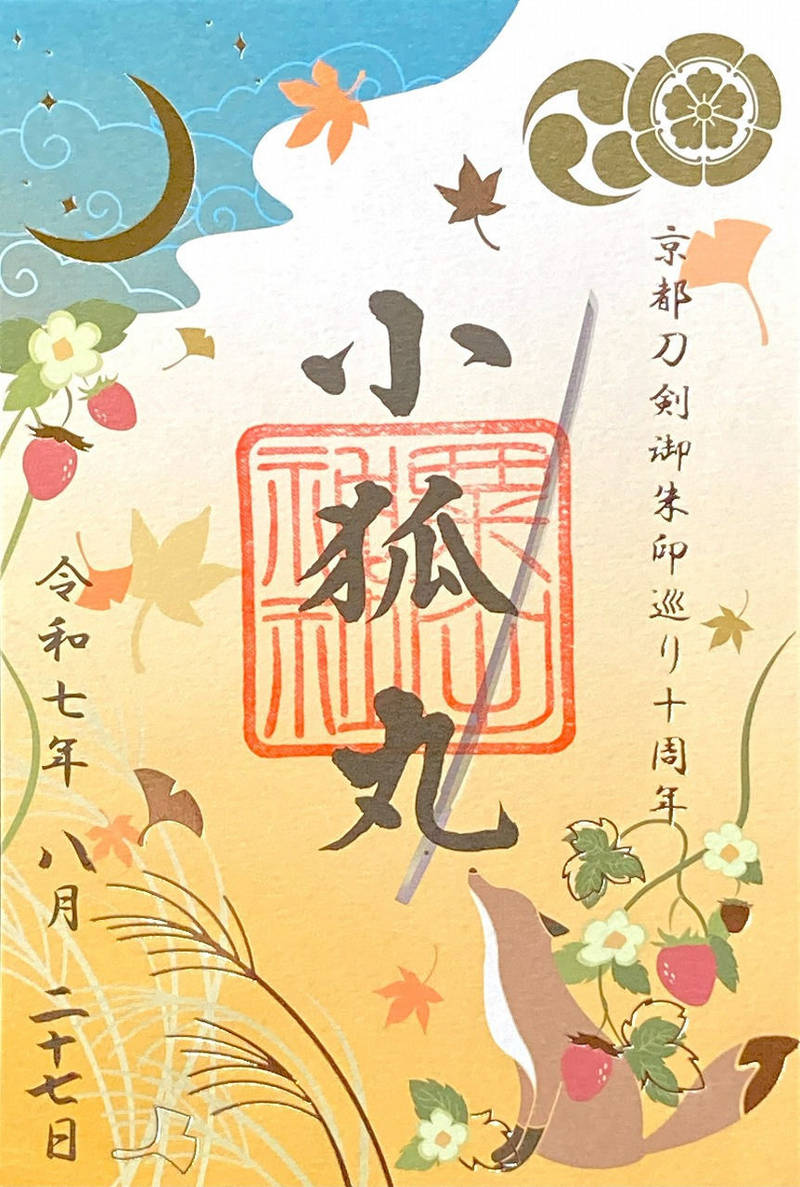 京都刀剣御朱印巡り十周年
小狐丸
粟田神社
令和七年 八月 二十七日